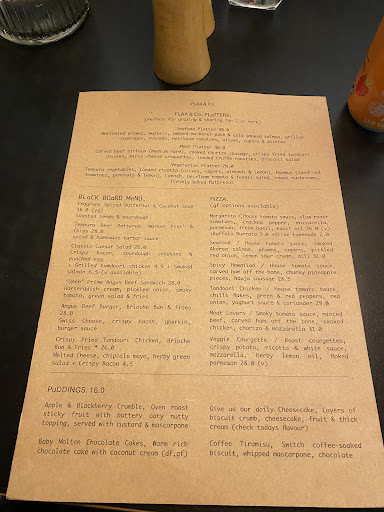 FLAX & CO.
FLAX & CO. PLATTERS.
(perfect for grazing & sharing for 2 or more)
Seafood Platter 90.0
Marinated prawns, mussels, smoked mackerel pate & cold smoked salmon, grilled
asparagus, avocado, heirloom tomatoes, olives, capers & pickles
Meat Platter 90.0
Carved beef sirloin (medium rare), cooked chorizo sausage, crispy fried tandoori
chicken, Blue cheese croquettes, loaded truffle
Vegetarian Platter 70.0
Tempura vegetables, loaded ricotta (olives, capers, almonds & lemon),
tomatoes, & lemon), radish, heirloom tomato & fennel salad, roast mushrooms,
freshly baked flatbreads
BLACK BOARD MENU.
Fragrant Spiced Butternut & Coconut Soup
16.0 (vg)
toasted seeds & sourdough
Tempura Beer Battered 'Market Fish' &
Chips 28.0
salad & homemade tartar sauce
Classic Caesar Salad 20.0
Crispy bacon, sourdough croutons &
poached egg
+ Grilled Tandoori chicken 4.5 | Smoked
salmon 6.5 (v available)
'Green' Prime Angus Beef Sandwich 28.0
Horseradish cream, pickled onion, smoky
tomato, green salad & fries
Angus Beef Burger, Brioche Bun & Fries
28.0
Swiss Cheese, crispy bacon, gherkin,
burger sauce
Crispy Fried Tandoori Chicken, Brioche
Bun & Fries * 26.0
Malted Cheese, chipotle mayo, herby green
salad + Crispy Bacon 4.5
PIZZA.
(gf options available)
Margarita / House tomato sauce, slow roast
tomatoes, cracked pepper, mozzarella,
parmesan, fresh basil, basil oil 26.0 (v)
+Buffalo Burrata 3.0 +Olive tapenade 2.0
Seafood / House tomato sauce, smoked
Akaroa salmon, prawns, capers, pickled
red onion, lemon sour cream, dill 31.0
Spicy Hawaiian / House tomato sauce,
carved ham off the bone, chunky pineapple
pieces, Nduja sausage 28.5
Tandoori Chicken / House tomato sauce,
chilli flakes, green & red peppers, red
onion, yoghurt sauce & coriander 29.0
Meat Lovers / Smoky tomato sauce, minced
beef, carved ham off the bone, smoked
chicken, chorizo & mozzarella 31.0
Veggie Courgette / Roast courgettes,
crispy potato, ricotta & white sauce,
mozzarella, herby lemon oil, flaked
parmesan 28.0 (v)
PUDDINGS. 16.0
Apple & Blackberry Crumble, Oven roast
sticky fruit with buttery oaty nutty
topping, served with custard & mascarpone
Baby Molten Chocolate Cakes, Warm rich
chocolate cake with coconut cream (df,gf)
Give us our daily Cheesecake, Layers of
biscuit crumb, cheesecake, fruit & thick
cream (check todays flavour)
Coffee Tiramisu, Switch coffee-soaked
biscuit, whipped mascarpone, chocolate